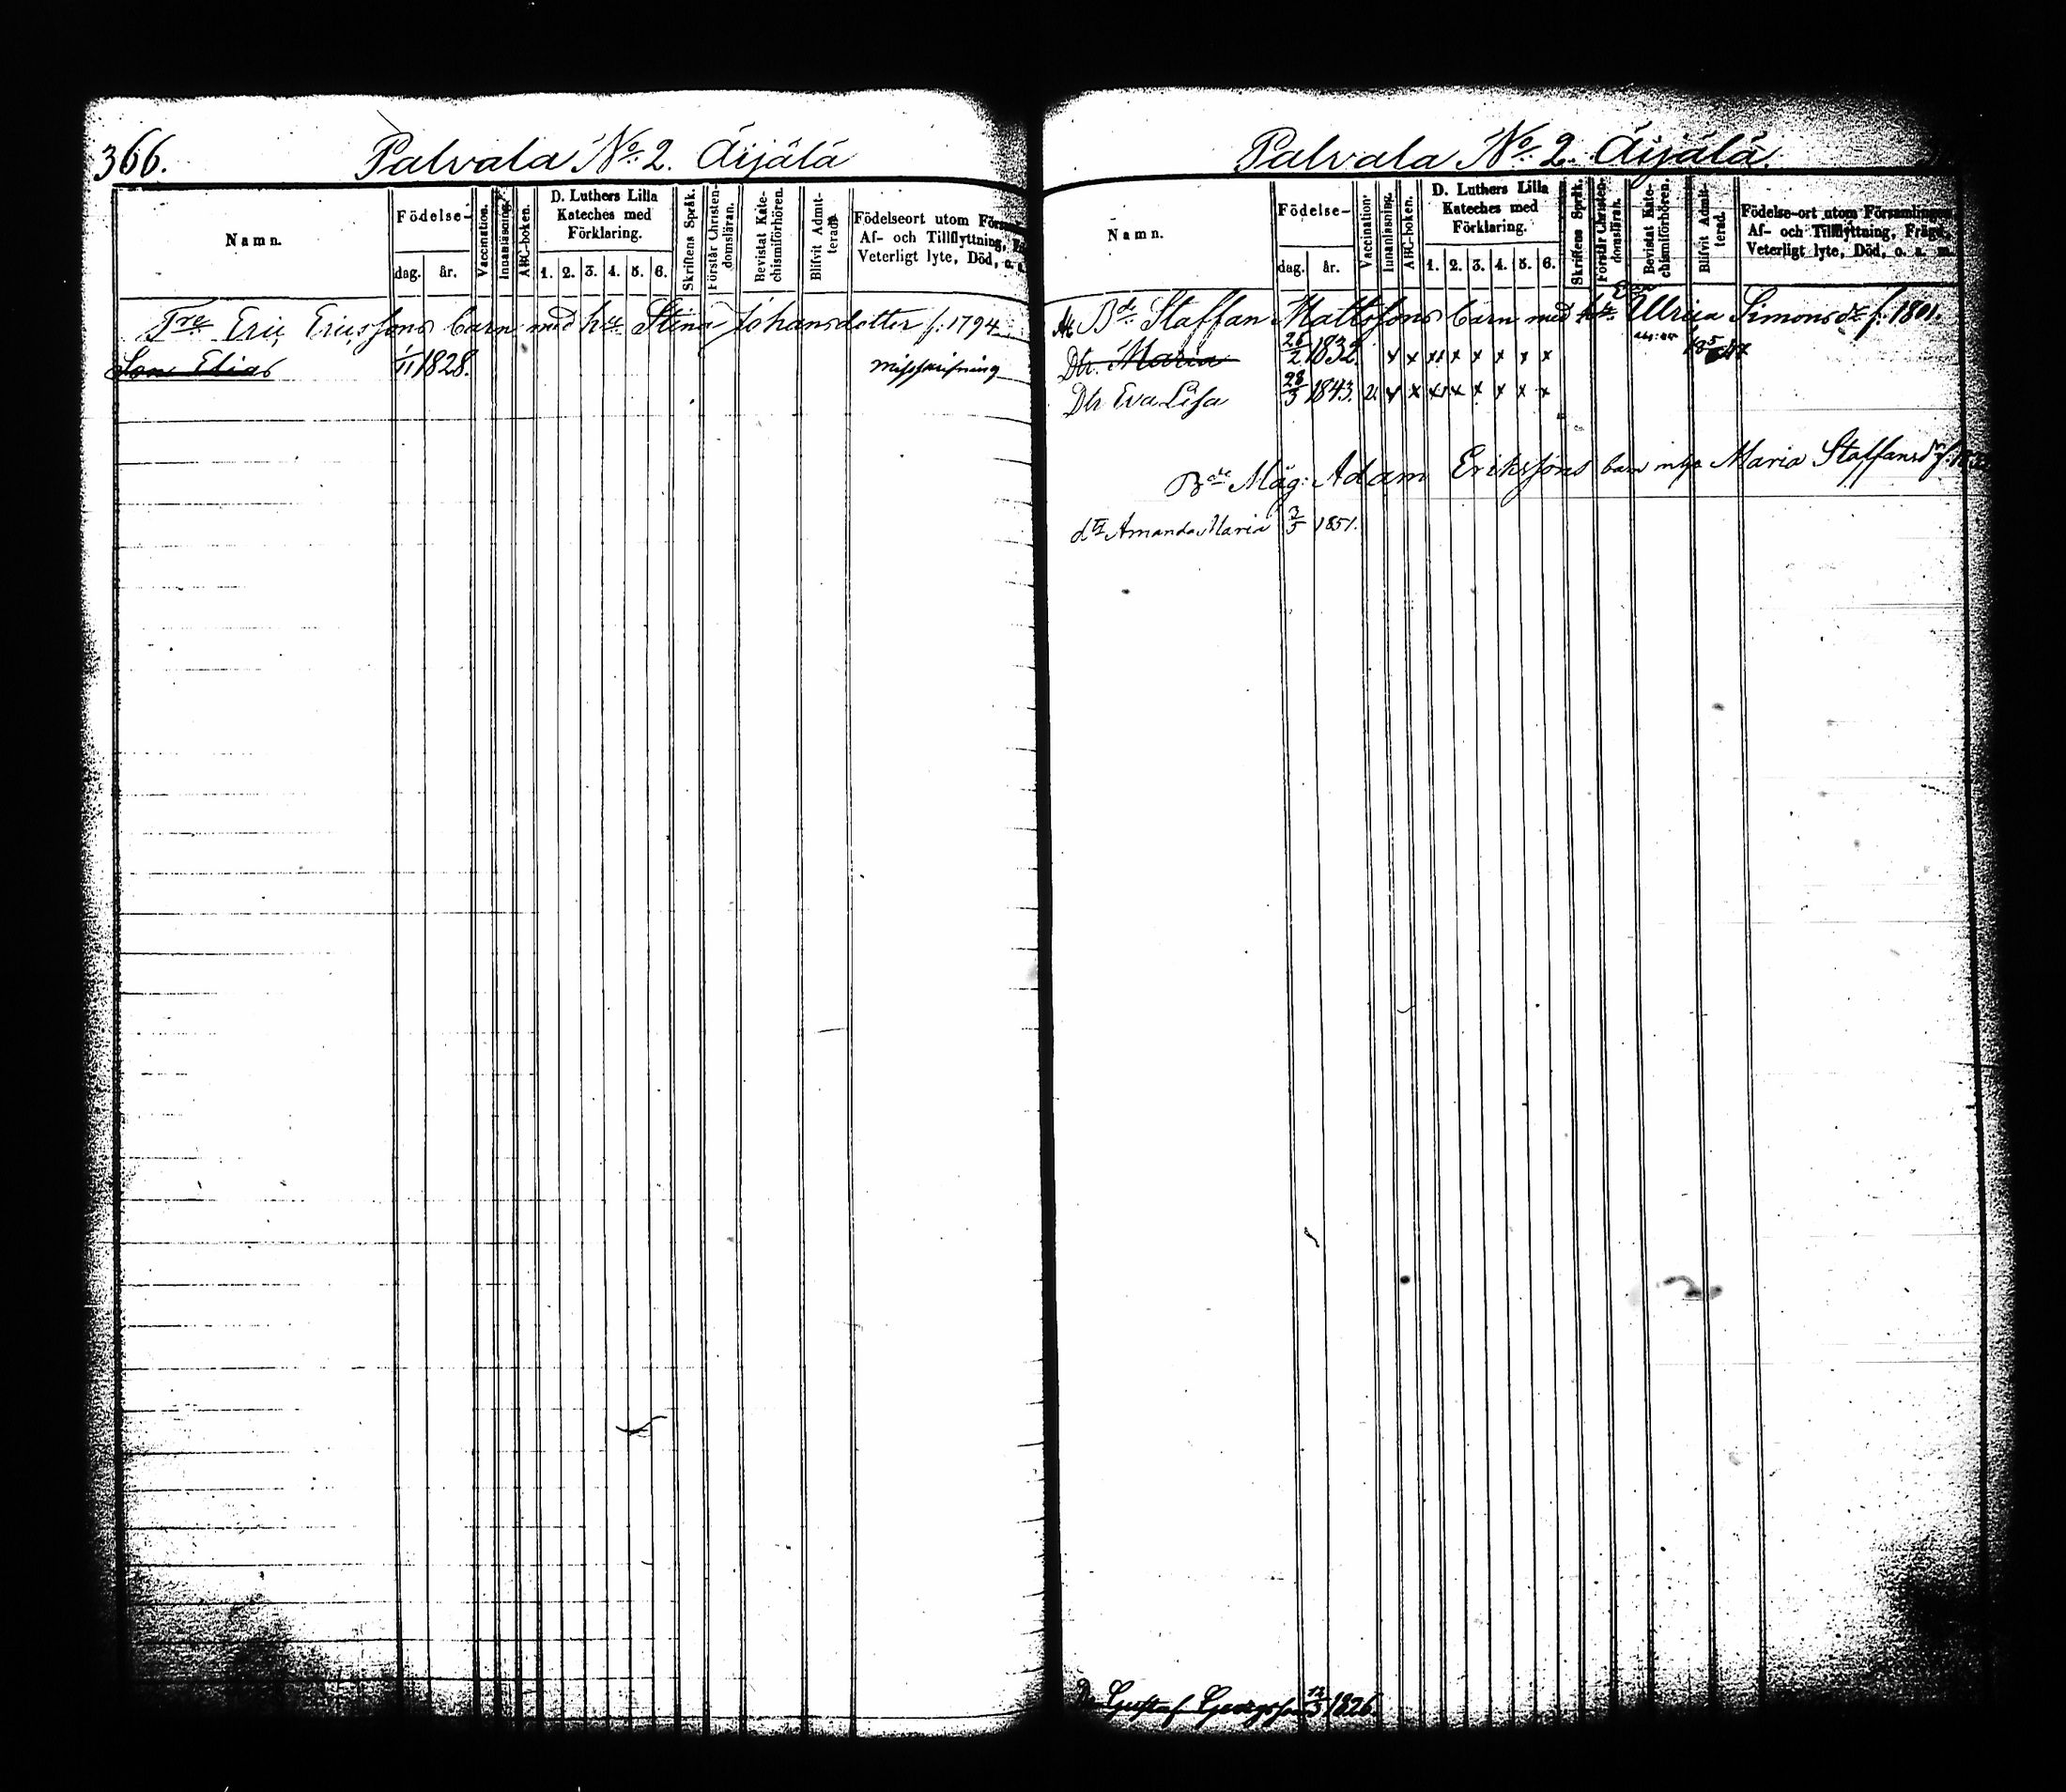 366.
Palvala No. 2. Äijälä
Namn.
Födelse-
dag. år.
Vaccination.
Innanläsning.
ABC-boken.
D. Luthers Lilla
Kateches med
Förklaring.
1. 2. 3. 4. 5. 6.
Skriftens Språk.
Förstår Christen-
domsläran.
Bevistat Kate-
chismiförhören.
Blifvit Admit-
terad.
Födelseort utom
Af- och Tillflyttning,
Veterligt lyte, Död, o. a.
Eric Ericssons barn med hu Stina Johansdotter f. 1794
Son Elias 1/11 1828. misskrifning
Palvala No. 2. Äijälä
Namn.
Födelse-
dag. år.
Vaccination.
Innanläsning.
ABC-boken.
D. Luthers Lilla
Kateches med
Förklaring.
1. 2. 3. 4. 5. 6.
Skriftens Språk.
Förstår Christen-
domsläran.
Bevistat Kate-
chismiförhören.
Blifvit Admit-
terad.
Födelse-ort utom Församlingen
Af- och Tillflyttning, Frägd,
Veterligt lyte, Död, o. a. m.
Bde Staffan Mattssons barn med Ullrica Simonsdr f. 1801.
Dtr. Maria 26/2 1832 x x xx x x x x x
Dtr Eva Lisa 28/3 1843. v. x x xx x x x x x
Bde Måg: Adam Erikssons barn Maria Staffansdr
dtr Amanda Maria 3/5 1851.
Gustaf Georgsson 1826.